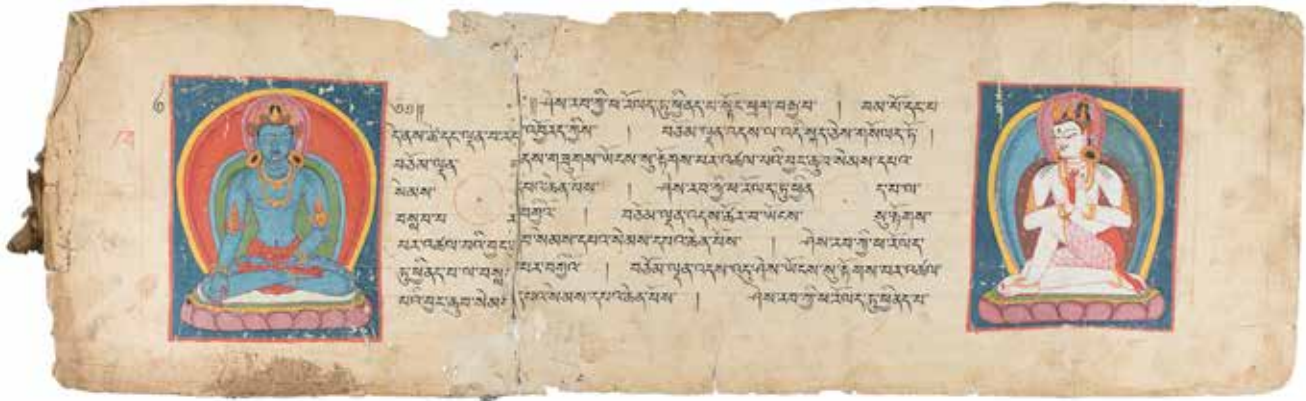 ༄༅།། །།ཤེས་རབ་ཀྱི་ཕ་རོལད་ཏུ་ཕྱིནད་པ་སྟོང་ཕྲག་བརྒྱ་པ་ ། བམ་པོ་དང་པ
དེནས་ཚེ་དང་ལྡན་བ་རབ་འབྱོརད་ཀྱིས་ ། བཅོམ་ལྡན་འདས་ལ་འདི་སྐད་ཅེས་གསོལད་ཏོ །
བཅོམ་ལྡན་ འདས་གཟུགས་ཡོངས་སུ་རྟོགས་པར་འཚལ་བའི་བྱང་ཆུབ་སེམས་དཔའ་
སེམས་ དཔའ་ཆེན་པོས་ ། ཤེས་རབ་ཀྱི་ཕ་རོལད་ཏུ་ཕྱིན ད་པ་ལ་
བསླབ་པ ར་བགྱིའོ ། བཅོམ་ལྡན་འདས་ཚོར་བ་ཡོངས་ སུ་རྟོགས་
པར་འཚལ་བའི་བྱང་ བ་སེམས་དཔའ་སེམས་དཔའ་ཆེན་པོས་ ། ཤེས་རབ་ཀྱི་ཕ་རོལད་
ཏུ་ཕྱིནད་པ་ལ་བསླ པར་བགྱིའོ ། བཅོམ་ལྡན་འདས་འདུ་ཤེས་ཡོངས་སུ་རྟོགས་པར་འཚལ་
བའི་བྱང་ཆུབ་སེམ དཔའ་སེམས་དཔའ་ཆེན་པོས་ ། ཤེས་རབ་ཀྱི་ཕ་རོལད་ཏུ་ཕྱིནད་པ་